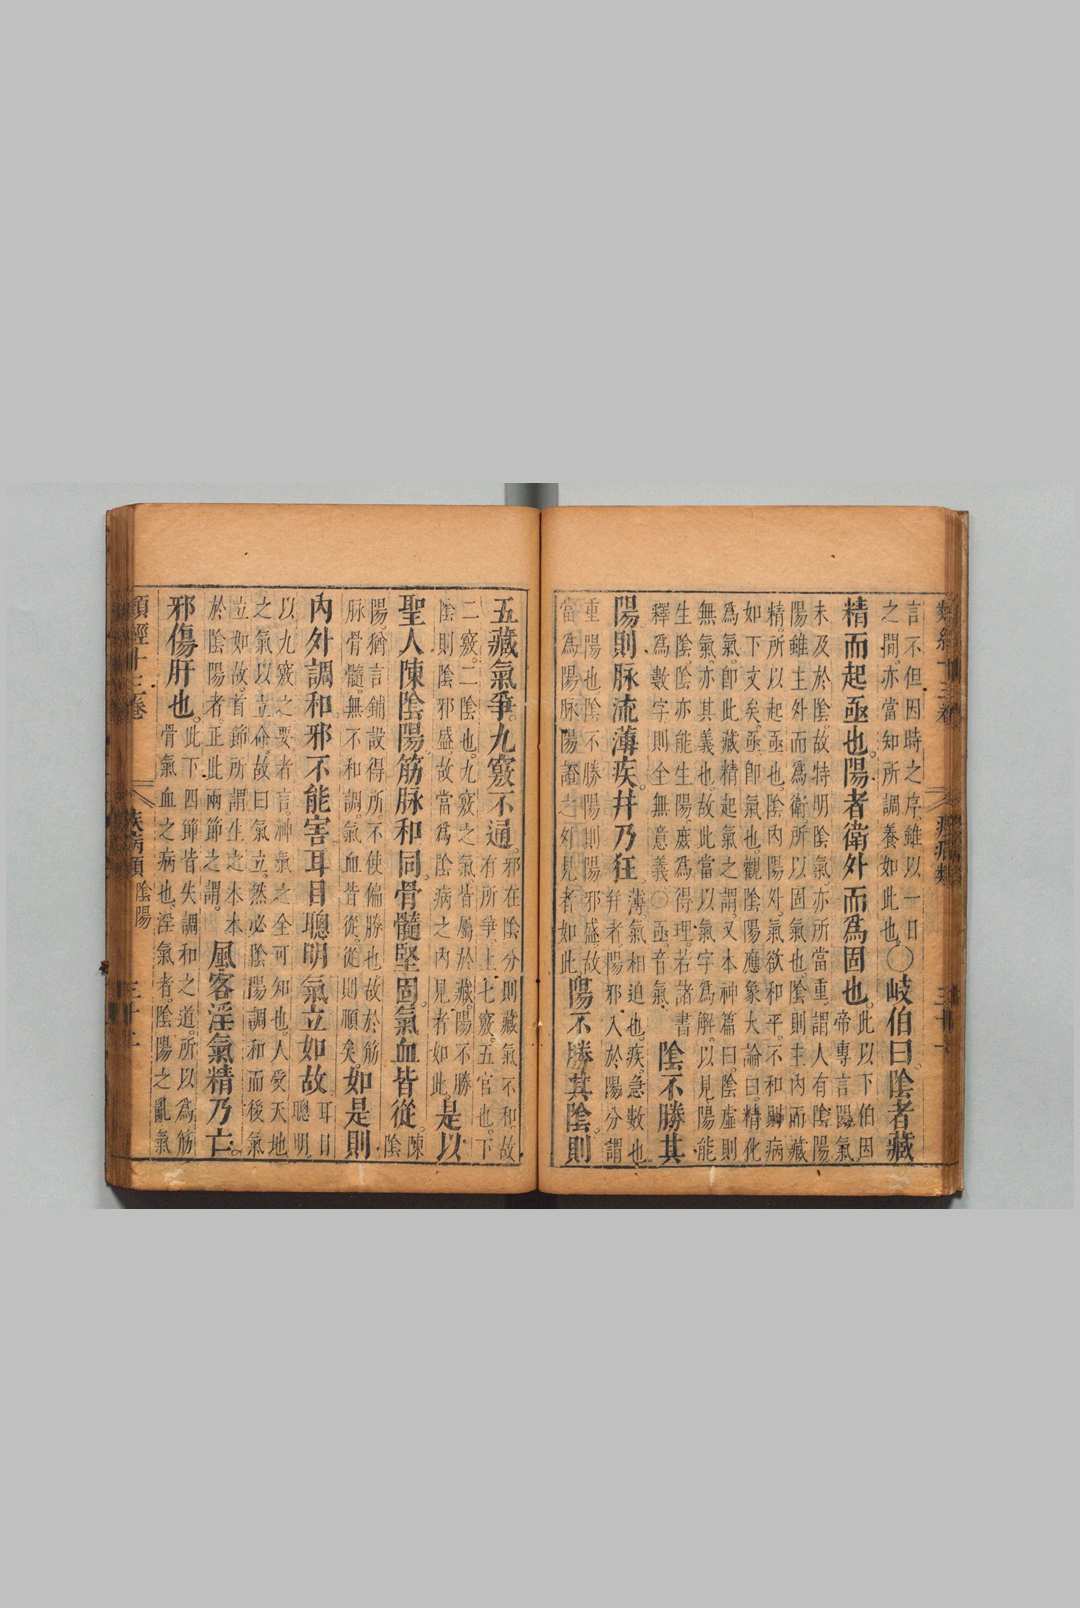 類經十三卷 疾病類 三十一
言不但因時之序雖以一日
之間亦當知所調養如此也
○岐伯曰陰者藏
精而起亟也。陽者衛外而爲固也。
此以下伯因
帝專言陽氣
未及於陰。故特明陰氣亦所當重。謂人有陰陽
陽雖主外而爲衛。所以固氣也。陰則主內而藏
精。所以起亟也。陰內陽外。氣欲和平。不和則病
如下文矣。亟卽氣也。觀陰陽應象大論曰。精化
爲氣。卽此藏精起氣之謂。又本神篇曰。陰虛則
無氣。亦其義也。故此當以氣字爲解。以見陽能
生陰。陰亦能生陽。庶爲得理。若諸書
釋爲數字則全無意義○亟音氣
陰不勝其
陽則脉流薄疾并乃狂。
薄氣相迫也。疾急數也
并者陽邪入於陽分。謂
重陽也陰不勝陽則陽邪盛故
當爲陽脉陽證之外見者如此
陽不勝其陰則
五藏氣爭。九竅不通。
邪在陰分則藏氣不和故
有所爭。上七竅。五官也。下
二竅。二陰也。九竅之氣皆屬於藏。陽不勝
陰則陰邪盛。故當爲陰病之內見者如此。
是以
聖人陳陰陽。筋脉和同。骨髓堅固。氣血皆從。
陳
陰
陽。猶言鋪設得所。不使偏勝也。故於筋
脉骨髓。無不和調。氣血皆從。從則順矣。
如是則
內外調和。邪不能害。耳目聰明。氣立如故。
耳目
聰明
以九竅之要者言。神氣之全可知也。人受天地
之氣以立命。故曰氣立。然必陰陽調和而後氣
立如故。首節所謂生之本本
於陰陽者。正此兩節之謂。
風客淫氣。精乃亡。
邪傷肝也。
此下四節皆失調和之道。所以爲筋
骨氣血之病也。淫氣者。陰陽之亂氣
類經十三卷 疾病類 陰陽 三十二